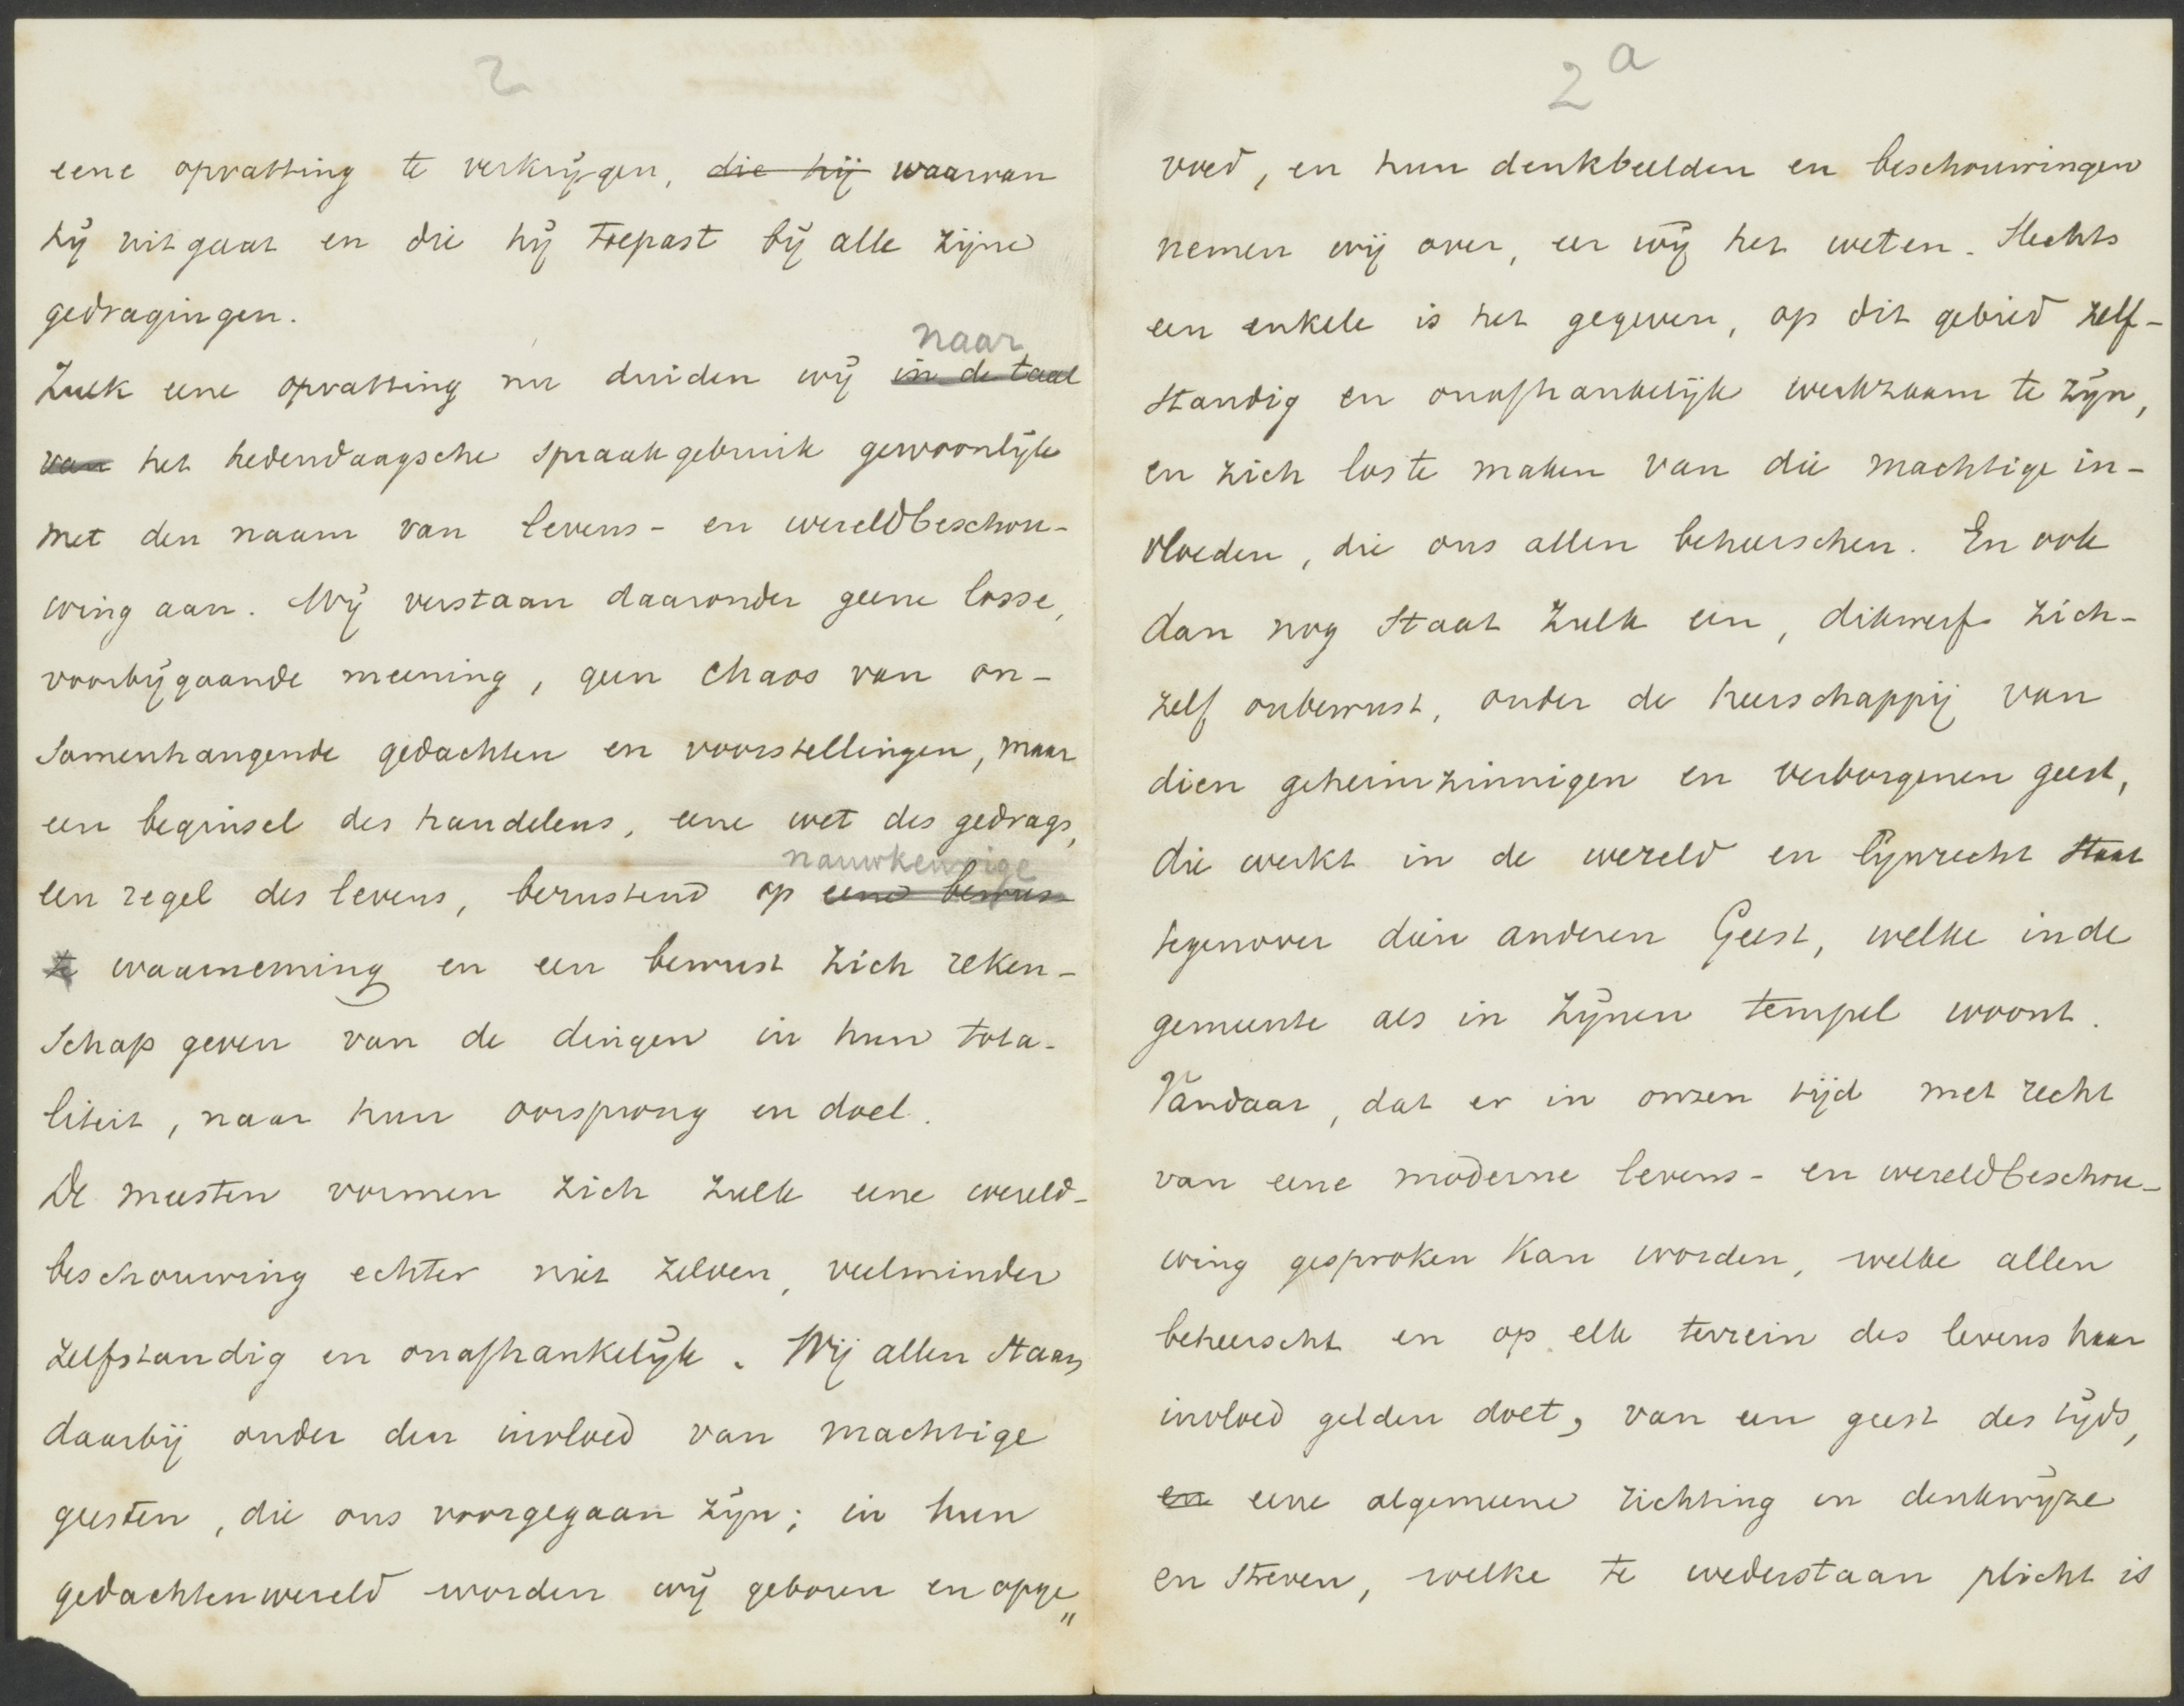 2
eene opvatting te verkrijgen, die hij waarvan
hij uitgaat en die hij toepast bij alle zijne
gedragingen.
naar
Zulk eene opvatting nu duiden wij in de taal
van het hedendaagsche spraakgebruik gewoonlijk
met den naam van levens- en wereldbeschou-
wing aan. Wij verstaan daaronder geene losse,
voorbijgaande meening, geen chaos van on-
samenhangende gedachten en voorstellingen, maar
een beginsel des handelens, eene wet des gedrags,
nauwkeurige
een regel des levens, berustend op eene bewus-
te waarneming en een bewust zich reken-
schap geven van de dingen in hun tota-
liteit, naar hun oorsprong en doel.
De meesten vormen zich zulk eene wereld-
beschouwing echter niet zelven, veelminder
zelfstandig en onafhankelijk. Wij allen staan
daarbij onder den invloed van machtige
geesten, die ons voorgegaan zijn; in hun
gedachtenwereld worden wij geboren en opge„
2a
voed, en hun denkbeelden en beschouwingen
nemen wij over, eer wij het weten. Slechts
een enkele is het gegeven, op dit gebied zelf-
standig en onafhankelijk werkzaam te zijn,
en zich los te maken van die machtige in-
vloeden, die ons allen beheerschen. En ook
dan nog staat zulk een, dikwerf zich-
zelf onbewust, onder de heerschappij van
dien geheimzinnigen en verborgenen geest,
die werkt in de wereld en lijnrecht staat
tegenover dien anderen Geest, welke in de
gemeente als in zijnen tempel woont.
Vandaar, dat er in onzen tijd met recht
van eene moderne levens- en wereldbeschou-
wing gesproken kan worden, welke allen
beheerscht en op elk terrein des levens haar
invloed gelden doet, van een geest des tijds,
en eene algemeene richting in denkwijze
en streven, welke te wederstaan plicht is